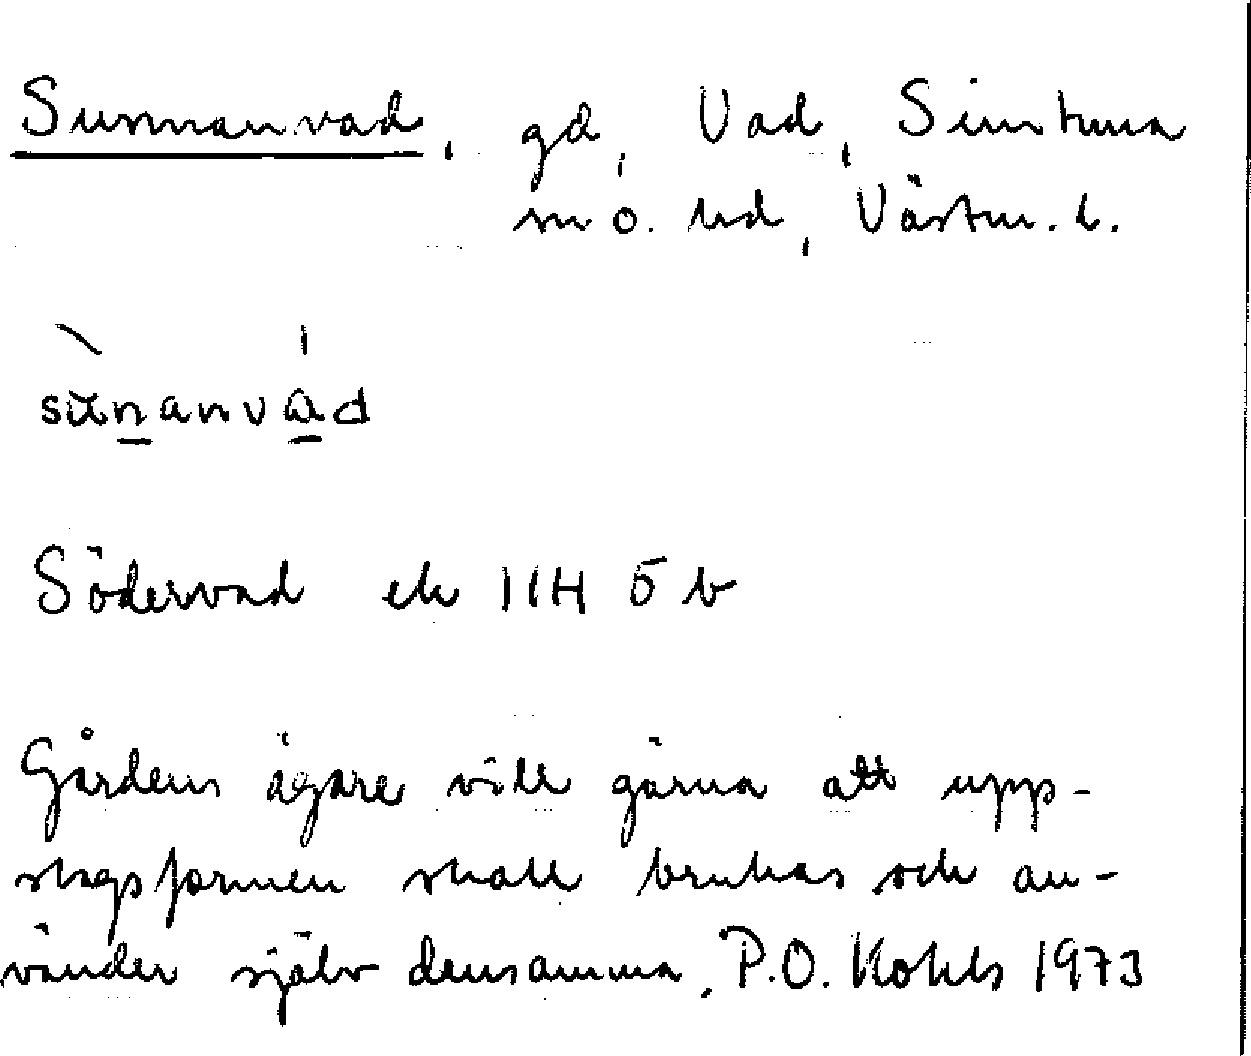 Sunnanvad, gd, Vad, Simtuna
sn o. hd, Västm. l.
sùnanvád
Södervad ek 11H 5b
Gårdens ägare vill gärna att upp-
slagsformen skall brukas och an-
vänder själv densamma. P.O. Kohls 1973